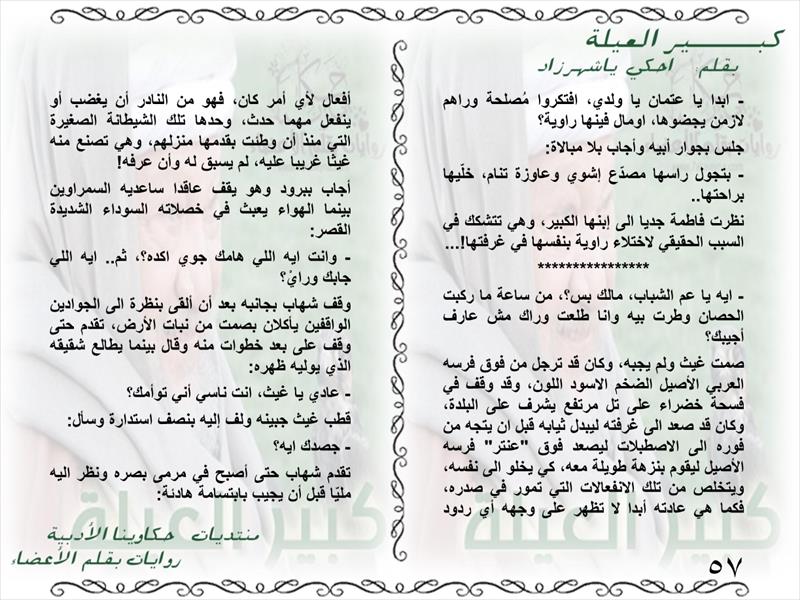 كبـــــــير العيلة
بقلم  احكي ياشهرزاد
- ابدا يا عتمان يا ولدي، افتكروا مُصلحة وراهم
لازمن يجضوها، اومال فينها راوية؟
جلس بجوار أبيه وأجاب بلا مبالاة:
- بتجول راسها مصدّع إشوي وعاوزة تنام، خلّيها
براحتها..
نظرت فاطمة جديا الى إبنها الكبير، وهي تتشكك في
السبب الحقيقي لاختلاء راوية بنفسها في غرفتها!...
****************
- ايه يا عم الشباب، مالك بس؟، من ساعة ما ركبت
الحصان وطرت بيه وانا طلعت وراك مش عارف
أجيبك؟
صمت غيث ولم يجبه، وكان قد ترجل من فوق فرسه
العربي الأصيل الضخم الاسود اللون، وقد وقف في
فسحة خضراء على تل مرتفع يشرف على البلدة،
وكان قد صعد الى غرفته ليبدل ثيابه قبل ان يتجه من
فوره الى الاصطبلات ليصعد فوق "عنتر" فرسه
الأصيل ليقوم بنزهة طويلة معه، كي يخلو الى نفسه،
ويتخلص من تلك الانفعالات التي تمور في صدره،
فكما هي عادته أبدا لا تظهر على وجهه أي ردود
أفعال لأي أمر كان، فهو من النادر أن يغضب أو
ينفعل مهما حدث، وحدها تلك الشيطانة الصغيرة
التي منذ أن وطئت بقدمها منزلهم، وهي تصنع منه
غيثا غريبا عليه، لم يسبق له وأن عرفه!
أجاب ببرود وهو يقف عاقدا ساعديه السمراوين
بينما الهواء يعبث في خصلاته السوداء الشديدة
القصر:
- وانت ايه اللي هامك جوي اكده؟، ثم.. ايه اللي
جابك وراي؟
وقف شهاب بجانبه بعد أن ألقى بنظرة الى الجوادين
الواقفين يأكلان بصمت من نبات الأرض، تقدم حتى
وقف على بعد خطوات منه وقال بينما يطالع شقيقه
الذي يوليه ظهره:
- عادي يا غيث، انت ناسي أني توأمك؟
قطب غيث جبينه ولف إليه بنصف استدارة وسأل:
- جصدك ايه؟
تقدم شهاب حتى أصبح في مرمى بصره ونظر اليه
مليّا قبل أن يجيب بابتسامة هادئة:
كبير العيلة
كبير العيلة
منتديات  حكاوينا الأدبية
روايات بقلم الأعضاء
٥٧